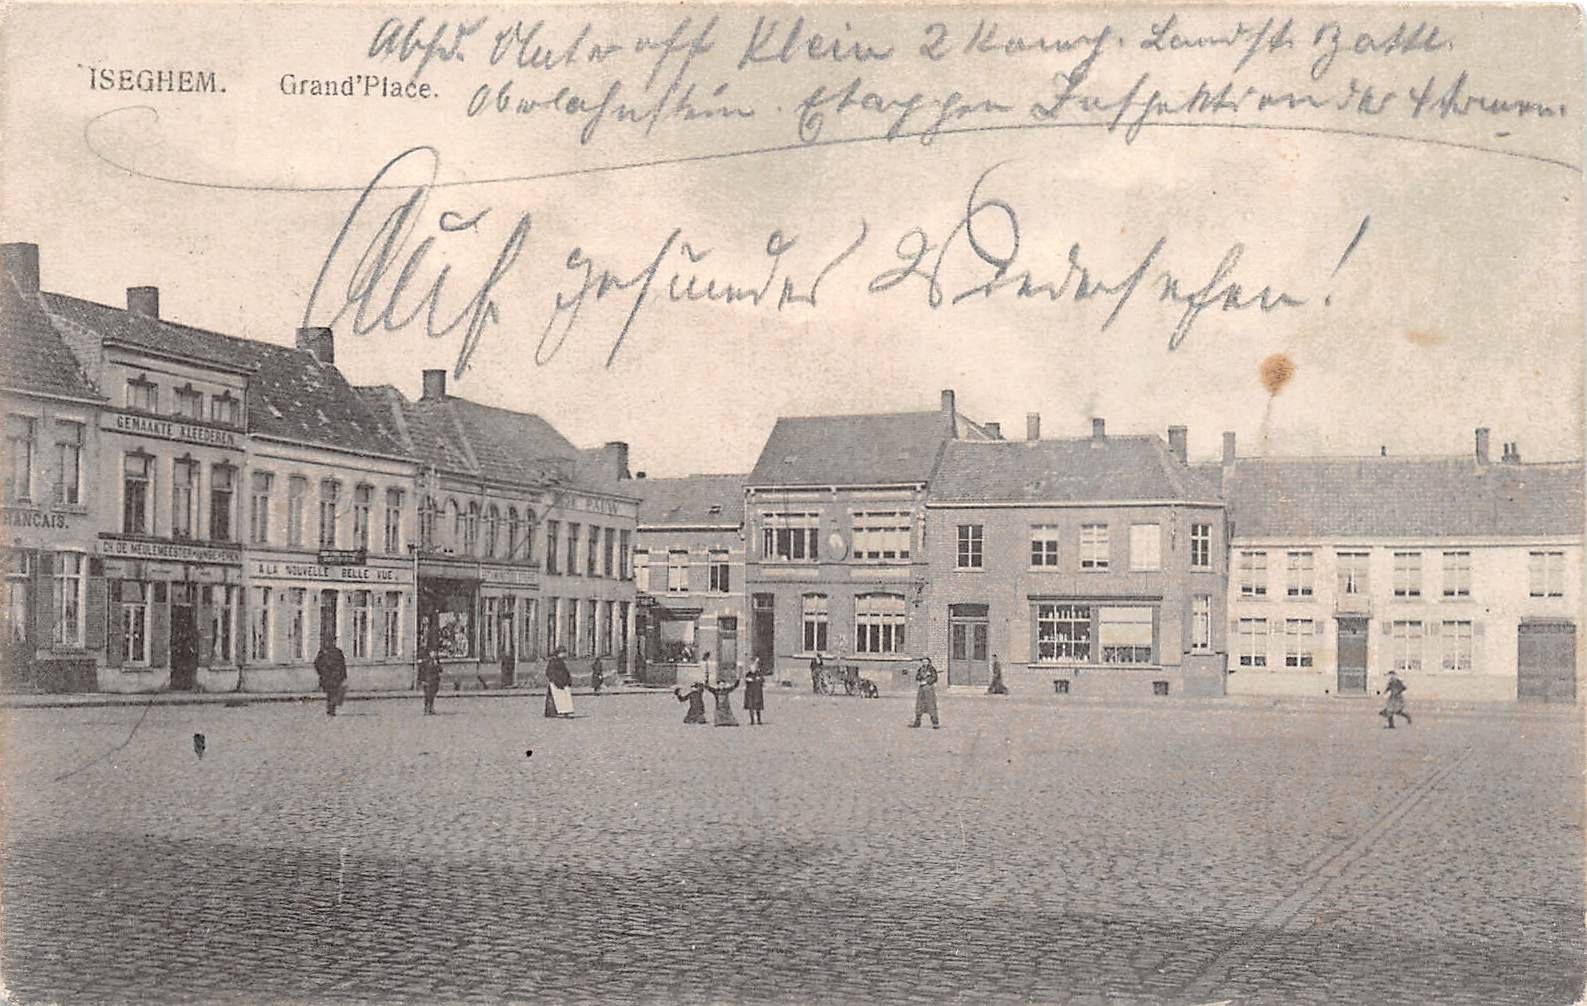 Absd. Unteroff Klein 2 Komp. Landst. Batl.
ISEGHEM. Grand'Place.
Oberlahnstein. Etappen Inspektion der 4 Armee.
Auf gesundes Wiedersehen!
GEMAAKTE KLEEDEREN.
CH. DE MEULEMEESTER
A LA NOUVELLE BELLE VUE